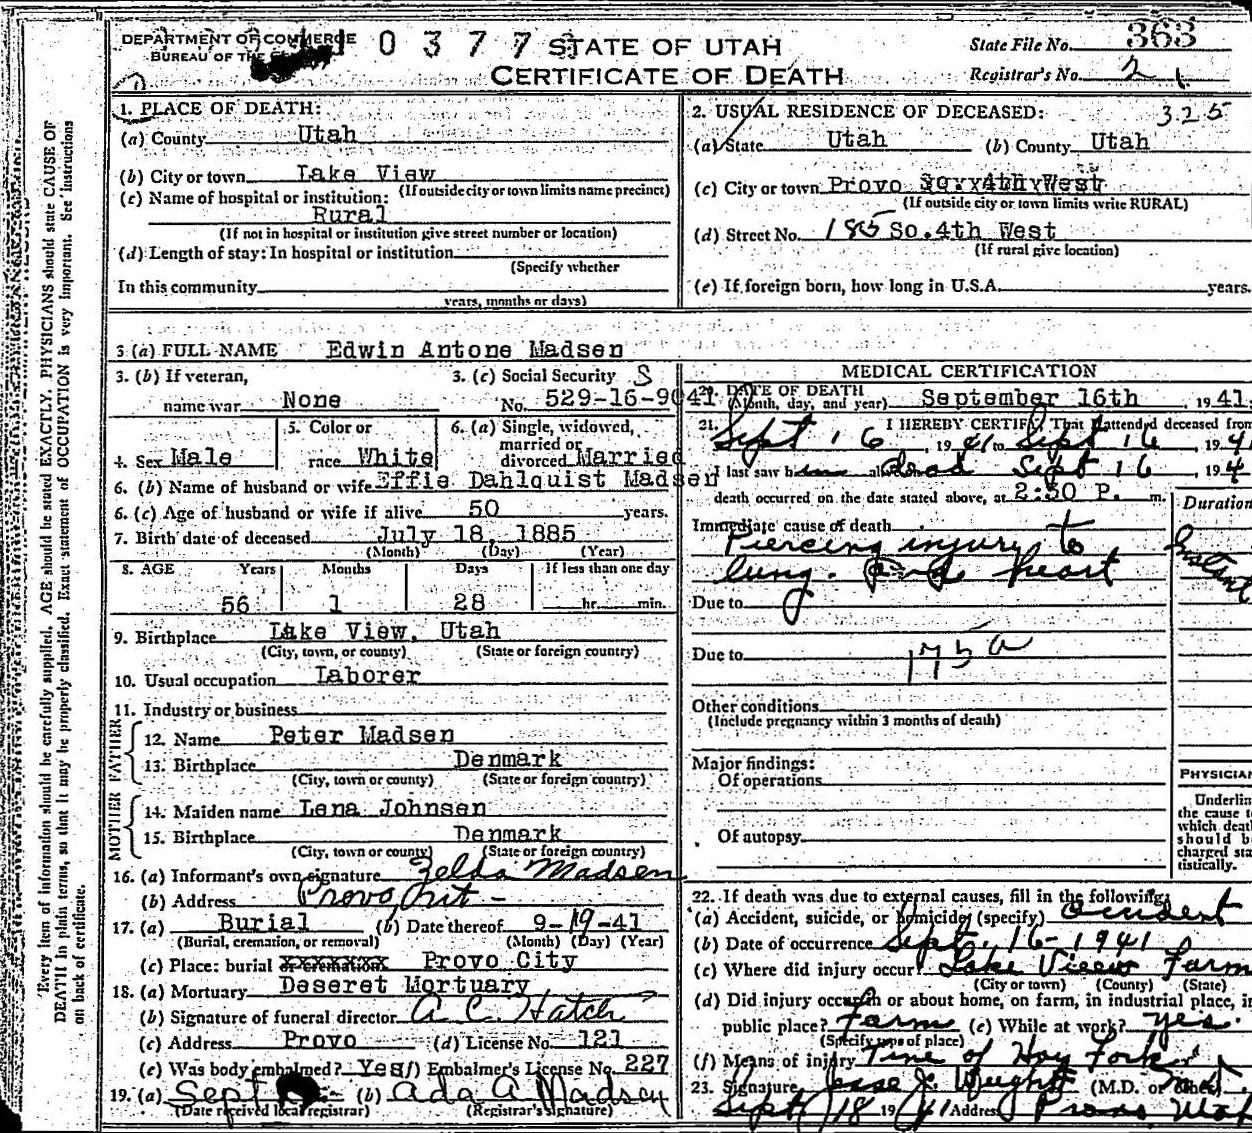 DEPARTMENT OF COMMERCE
BUREAU OF THE
0 3 7 7
STATE OF UTAH
CERTIFICATE OF DEATH
State File No. 363
Registrar's No. 2
1. PLACE OF DEATH:
(a) County Utah
(b) City or town Lake View
(If outside city or town limits name precinct)
(c) Name of hospital or institution:
Rural
(If not in hospital or institution give street number or location)
(d) Length of stay: In hospital or institution
(Specify whether
In this community
years, months or days)
2. USUAL RESIDENCE OF DECEASED: 325
(a) State Utah (b) County Utah
(c) City or town Provo So. 4th West
(If outside city or town limits write RURAL)
(d) Street No. 185 So. 4th West
(If rural give location)
(e) If foreign born, how long in U.S.A. years.
3 (a) FULL NAME Edwin Antone Madsen
3. (b) If veteran,
name war None
3. (c) Social Security S
No. 529-16-9041
4. Sex Male
5. Color or
race White
6. (a) Single, widowed,
married or
divorced Married
6. (b) Name of husband or wife Effie Dahlquist Madsen
6. (c) Age of husband or wife if alive 50 years.
7. Birth date of deceased July 18, 1885
(Month) (Day) (Year)
8. AGE Years Months Days If less than one day
56 1 28 hr. min.
9. Birthplace Lake View, Utah
(City, town, or county) (State or foreign country)
10. Usual occupation Laborer
11. Industry or business
FATHER
12. Name Peter Madsen
13. Birthplace Denmark
(City, town or county) (State or foreign country)
MOTHER
14. Maiden name Lena Johnsen
15. Birthplace Denmark
(City, town or county) (State or foreign country)
16. (a) Informant's own signature Zelda Madsen
(b) Address Provo
17. (a) Burial (b) Date thereof 9-19-41
(Burial, cremation, or removal) (Month) (Day) (Year)
(c) Place: burial or cremation Provo City
18. (a) Mortuary Deseret Mortuary
(b) Signature of funeral director A C Hatch
(c) Address Provo (d) License No. 121
(e) Was body embalmed? Yes (f) Embalmer's License No. 227
19. (a) Sept (b) Ada A Madsen
(Date received local registrar) (Registrar's signature)
MEDICAL CERTIFICATION
20. DATE OF DEATH
(Month, day, and year) September 16th , 1941.
21. I HEREBY CERTIFY, That I attended deceased from
Sept 16, 1941 to Sept 16 194
I last saw him alive dead Sept 16, 194
death occurred on the date stated above, at 2:30 P. m.
Immediate cause of death
Duration
Piercing injury to
lung. and heart
Instant
Due to
Due to 175a
Other conditions
(Include pregnancy within 3 months of death)
Major findings:
Of operations
Of autopsy
PHYSICIAN
Underlin
the cause t
which deat
should b
charged sta
tistically.
22. If death was due to external causes, fill in the following:
(a) Accident, suicide, or homicide (specify) Accident
(b) Date of occurrence Sept. 16 - 1941
(c) Where did injury occur? Lake View Farm
(City or town) (County) (State)
(d) Did injury occur in or about home, on farm, in industrial place, in
public place? Farm (e) While at work? yes.
(Specify type of place)
(f) Means of injury Tine of Hay Fork
23. Signature Jesse J. Wright (M.D. or other)
Sept 18 1941 Address Provo Utah
Every item of information should be carefully supplied. AGE should be stated EXACTLY. PHYSICIANS should state CAUSE OF
DEATH in plain terms, so that it may be properly classified. Exact statement of OCCUPATION is very important. See instructions
on back of certificate.